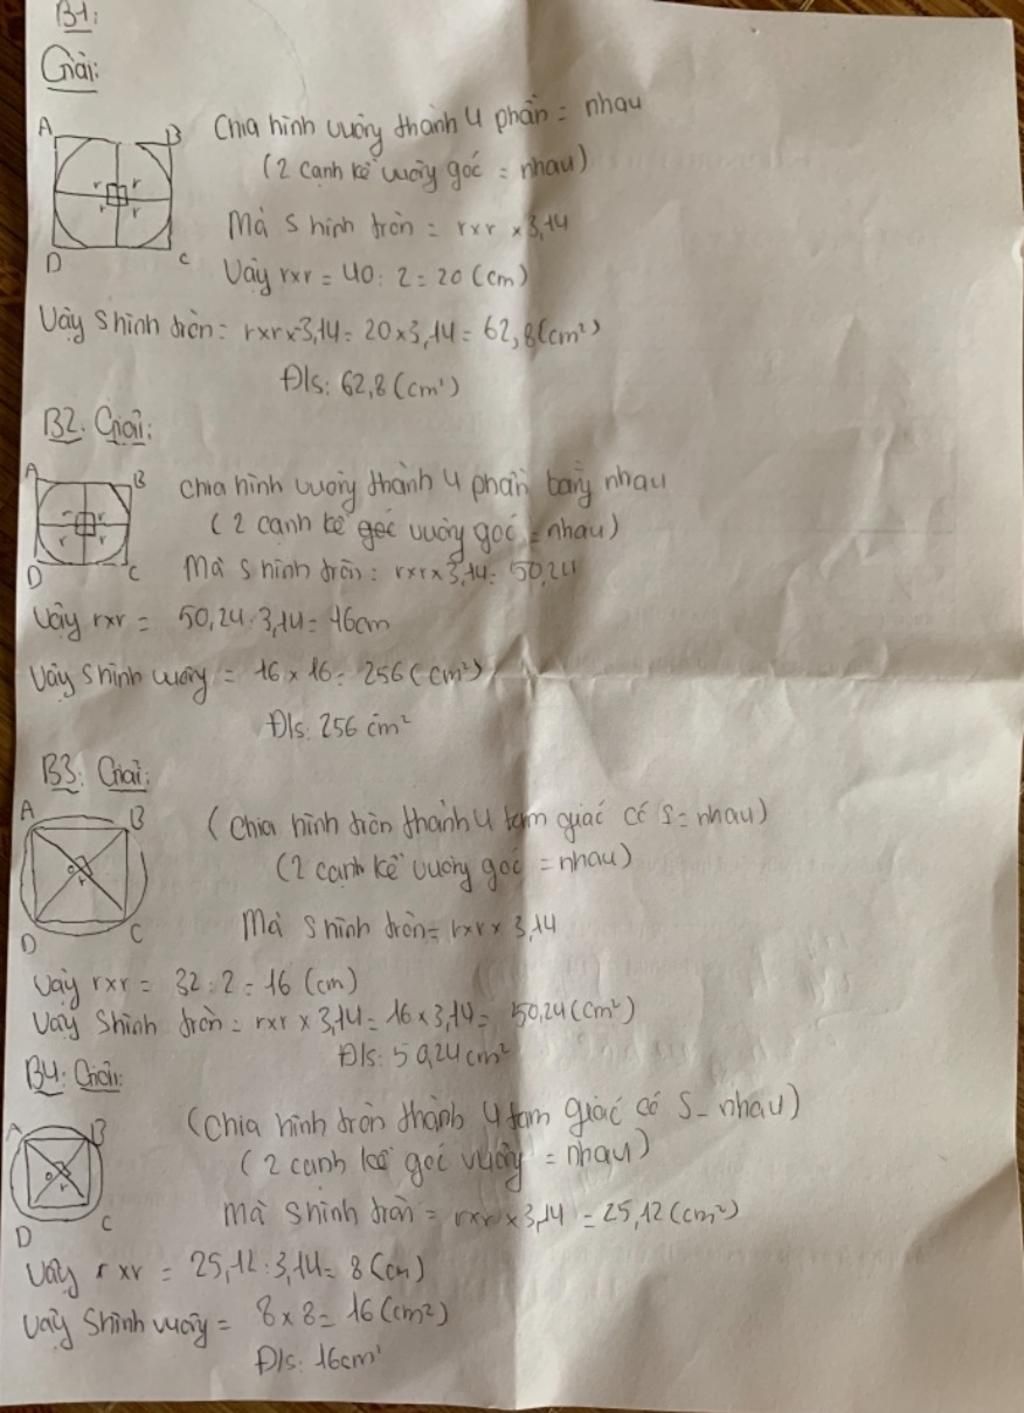 B1:
Giải:
A B
r r
r r
D C
Chia hình vuông thành 4 phần = nhau
(2 cạnh kề vuông góc = nhau)
Mà S hình tròn = rxr x 3,14
Vậy rxr = 40 : 2 = 20 (cm)
Vậy S hình tròn = rxrx3,14 = 20 x 3,14 = 62,8 (cm²)
Đ/s: 62,8 (cm²)
B2. Giải:
A B
r r
r r
D C
Chia hình vuông thành 4 phần bằng nhau
(2 cạnh kề góc vuông góc = nhau)
Mà S hình tròn = rxrx3,14 = 50,24
Vậy rxr = 50,24 : 3,14 = 16cm
Vậy S hình vuông = 16 x 16 = 256 (cm²)
Đ/s: 256 cm²
B3: Giải:
A B
o
r
D C
(Chia hình tròn thành 4 tam giác có S = nhau)
(2 cạnh kề vuông góc = nhau)
Mà S hình tròn = rxr x 3,14
Vậy rxr = 32 : 2 = 16 (cm)
Vậy S hình tròn = rxr x 3,14 = 16 x 3,14 = 50,24 (cm²)
Đ/s: 50,24 cm²
B4: Giải:
A B
o
r
D C
(Chia hình tròn thành 4 tam giác có S = nhau)
(2 cạnh kề góc vuông = nhau)
Mà S hình tròn = rxr x 3,14 = 25,12 (cm²)
Vậy r xr = 25,12 : 3,14 = 8 (cm)
Vậy S hình vuông = 8 x 8 = 16 (cm²)
Đ/s: 16cm²